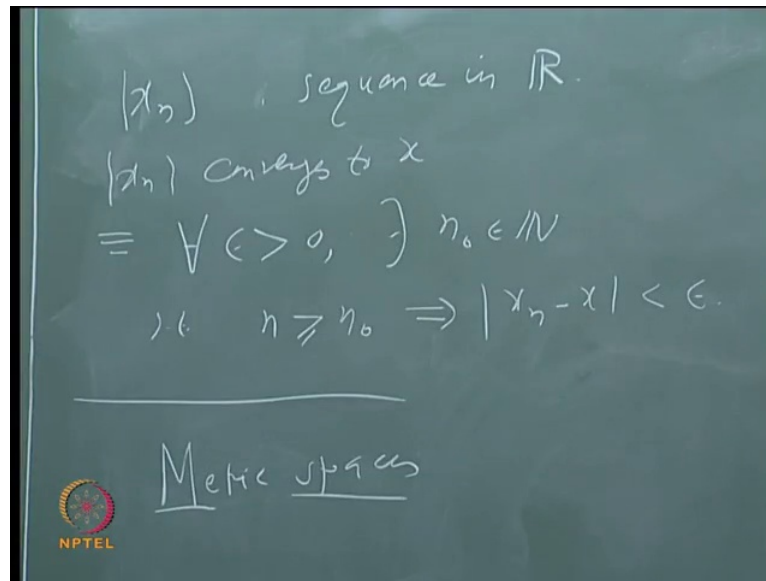 (xₙ) . sequence in ℝ.
(xₙ) converges to x
≡ ∀ ε > 0, ∃ n₀ ∈ ℕ
s.t. n ≥ n₀ ⇒ |xₙ - x| < ε.
Metric spaces
NPTEL